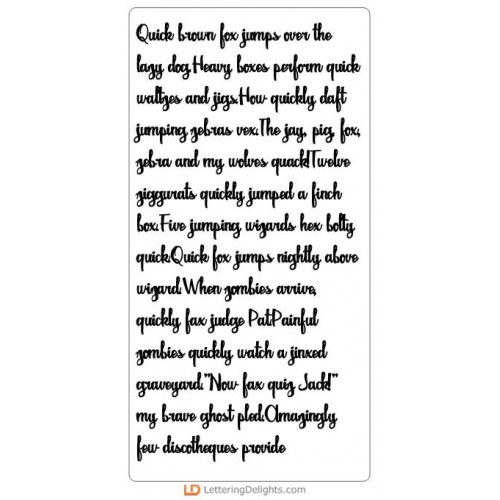 Quick brown fox jumps over the
lazy dog.Heavy boxes perform quick
waltzes and jigs.How quickly daft
jumping zebras vex.The jay, pig, fox,
zebra and my wolves quack!Twelve
ziggurats quickly jumped a finch
box.Five jumping wizards hex bolty
quick.Quick fox jumps nightly above
wizard.When zombies arrive,
quickly fax judge Pat.Painful
zombies quickly watch a jinxed
graveyard."Now fax quiz Jack!"
my brave ghost pled.Amazingly
few discotheques provide
LD LetteringDelights.com